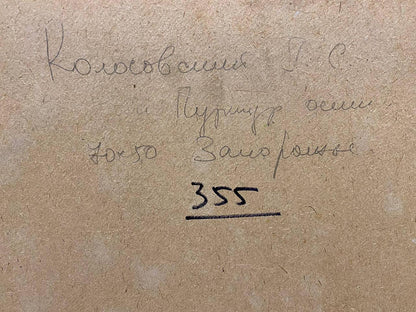 Колосовский Г С.
и Пурпур осени
70х50 Запорожье
355